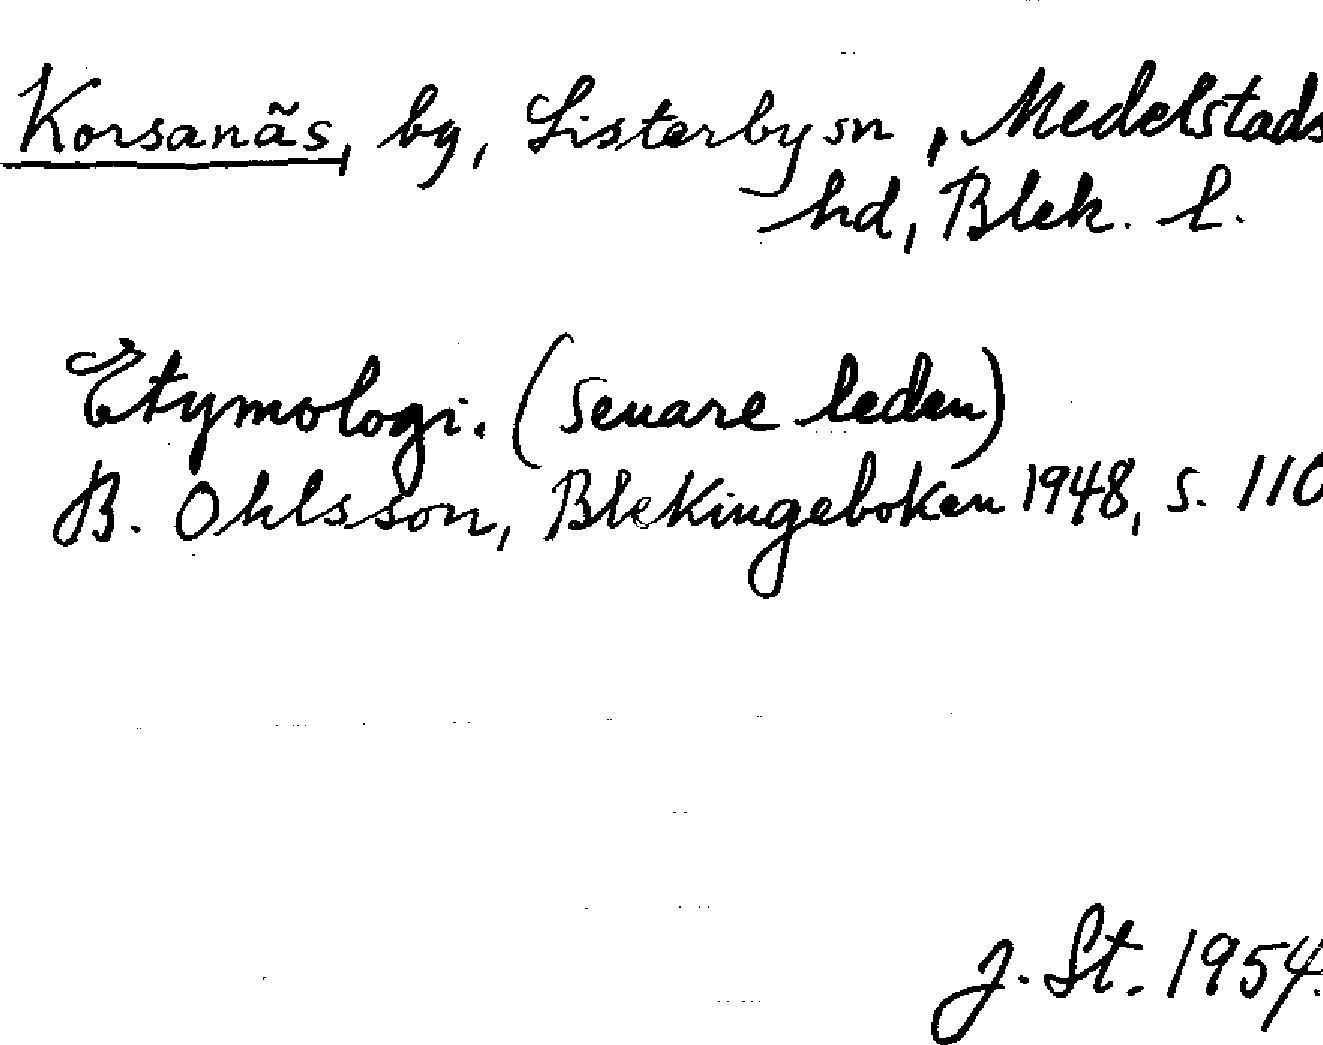 Korsanäs, by, Listerby sn, Medelstads
hd, Blek. l.
Etymologi. (senare leden)
B. Ohlsson, Blekingeboken 1948, s. 110
J. St. 1954.